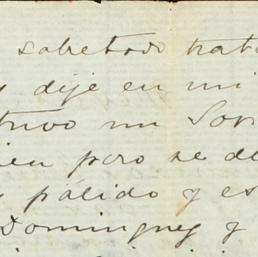 sobretodo trata
y dije en mi
tuvo un Son
ien pero se de
y pálido y es
Dominguez y